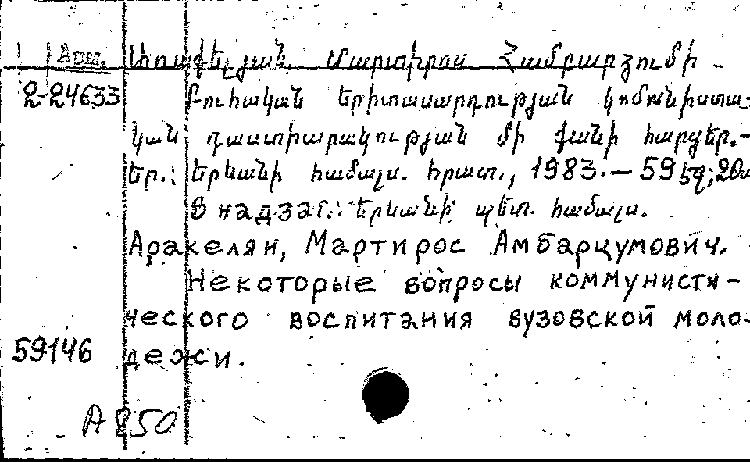 Арм. Առաքելյան Մարտիրոս Համբարձումի
2-24633 Բուհական երիտասարդության կոմունիստա-
կան դաստիարակության մի քանի հարցեր.-
Եր.: Երևանի համալս. հրատ., 1983.— 59 էջ; 20սմ
В надзаг.: Երևանի պետ. համալս.
Аракелян, Мартирос Амбарцумович.
Некоторые вопросы коммунисти-
ческого воспитания вузовской моло-
59146 дежи.
А 850